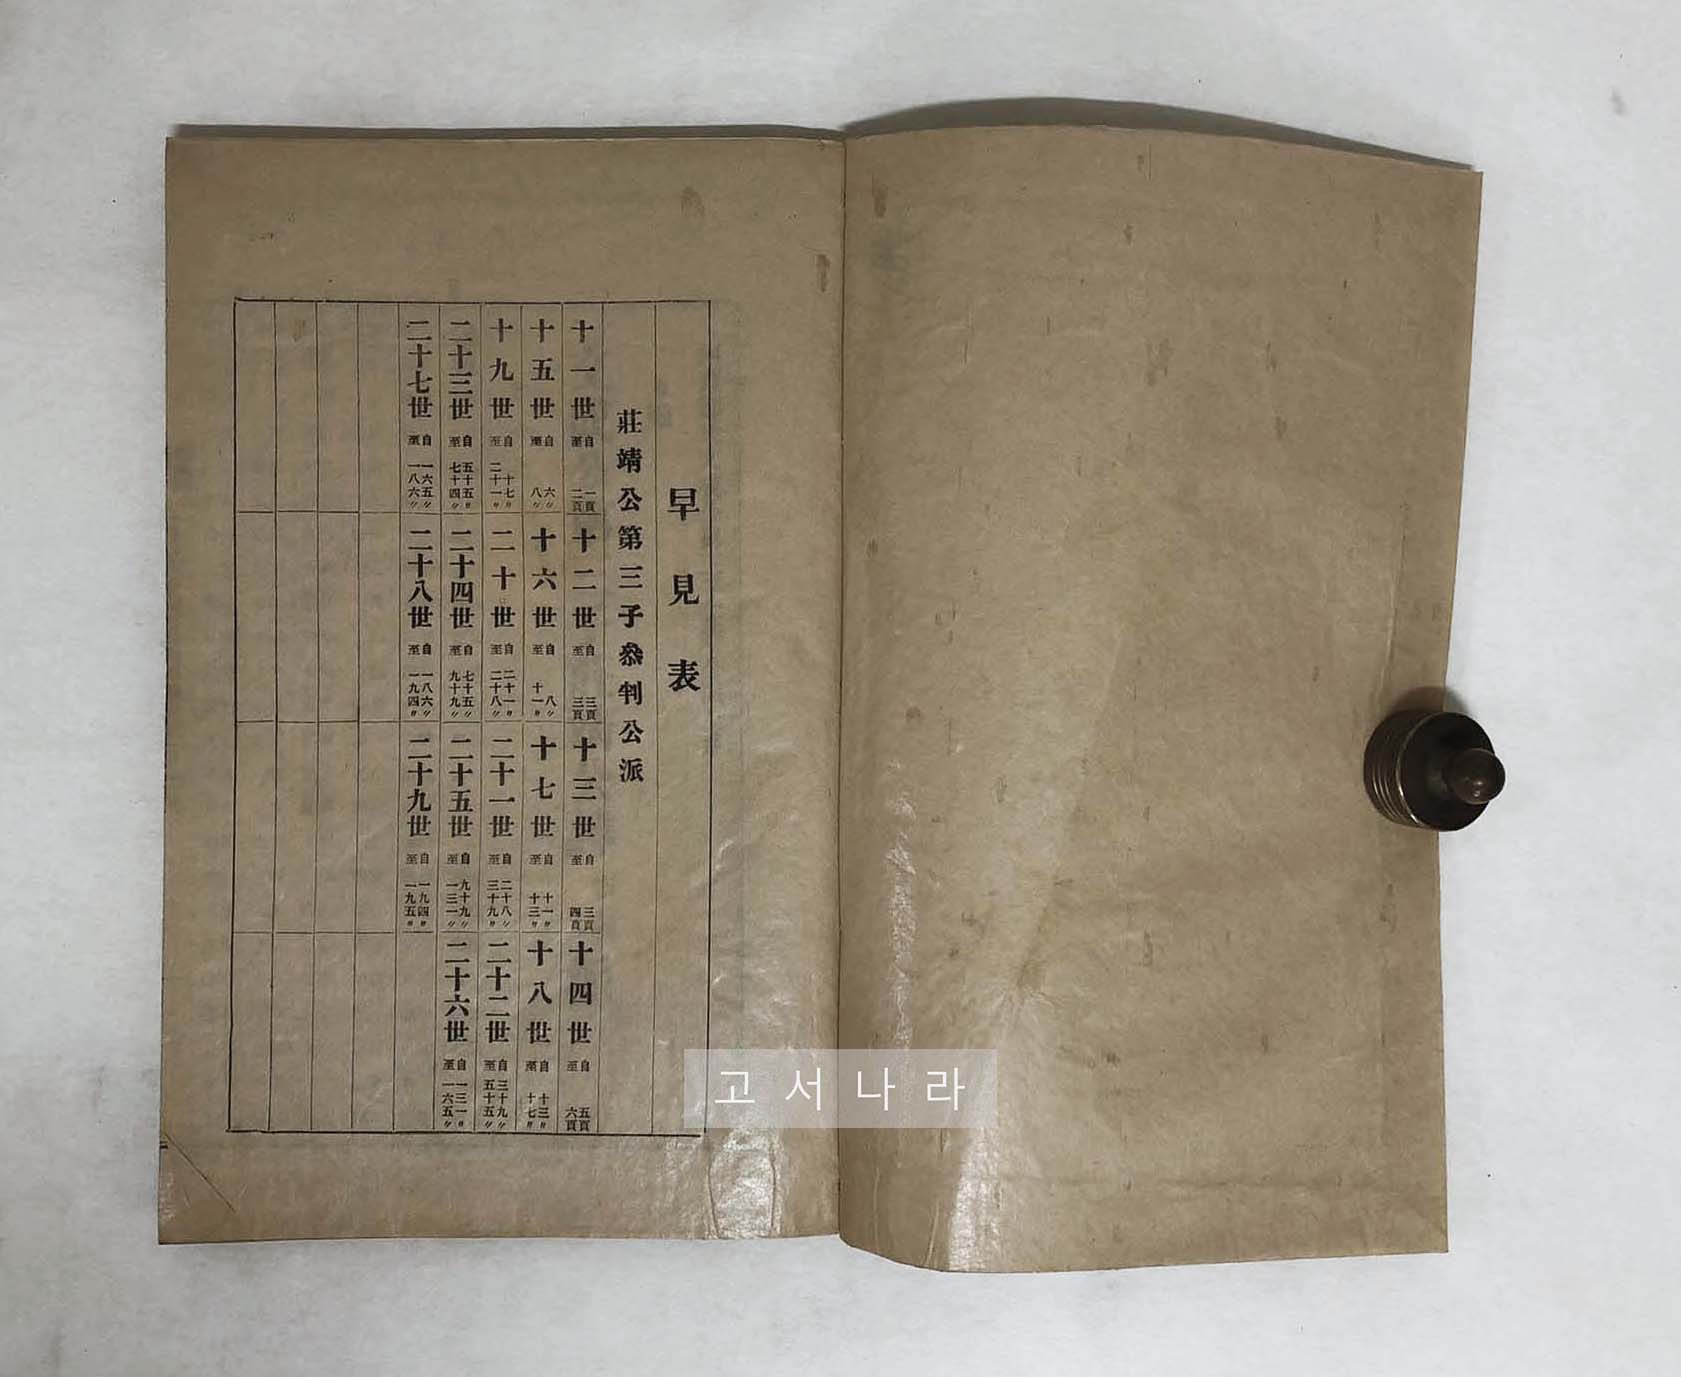 早見表
莊靖公第三子叅判公派
十一世 自一頁 至二頁
十二世 自三頁 至三頁
十三世 自三頁 至四頁
十四世 自五頁 至六頁
十五世 自六〃 至八〃
十六世 自八〃 至十一〃
十七世 自十一〃 至十三〃
十八世 自十三〃 至十七〃
十九世 自十七〃 至二十一〃
二十世 自二十一〃 至二十八〃
二十一世 自二十八〃 至三十九〃
二十二世 自三十九〃 至五十五〃
二十三世 自五十五〃 至七十四〃
二十四世 自七十五〃 至九十九〃
二十五世 自九十九〃 至一三一〃
二十六世 自一三一〃 至一六五〃
二十七世 自一六五〃 至一八六〃
二十八世 自一八六〃 至一九四〃
二十九世 自一九四〃 至一九五〃
고서나라